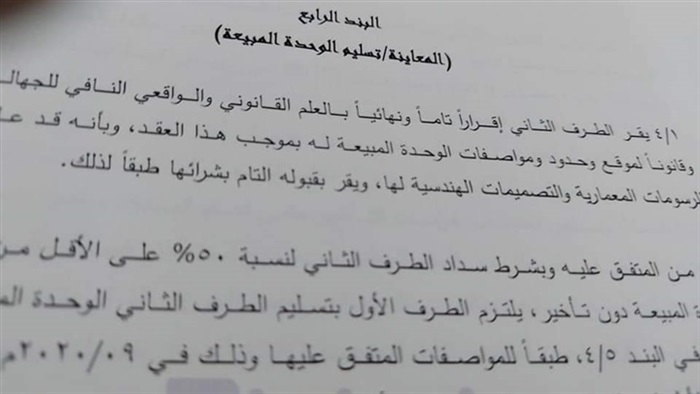 البند الرابع
(المعاينة/تسليم الوحدة المبيعة)
٤/١ يقر الطرف الثاني إقراراً تاماً ونهائياً بالعلم القانوني والواقعي النافي للجهالـ
وقانوناً لموقع وحدود ومواصفات الوحدة المبيعة له بموجب هذا العقد، وبأنه قد عا
الرسومات المعمارية والتصميمات الهندسية لها، ويقر بقبوله التام بشرائها طبقاً لذلك.
من المتفق عليه وبشرط سداد الطرف الثاني لنسبة ٥٠% على الأقل من
المبيعة دون تأخير، يلتزم الطرف الأول بتسليم الطرف الثاني الوحدة
في البند ٤/٥، طبقاً للمواصفات المتفق عليها وذلك في ٢٠٢٠/٠٩م